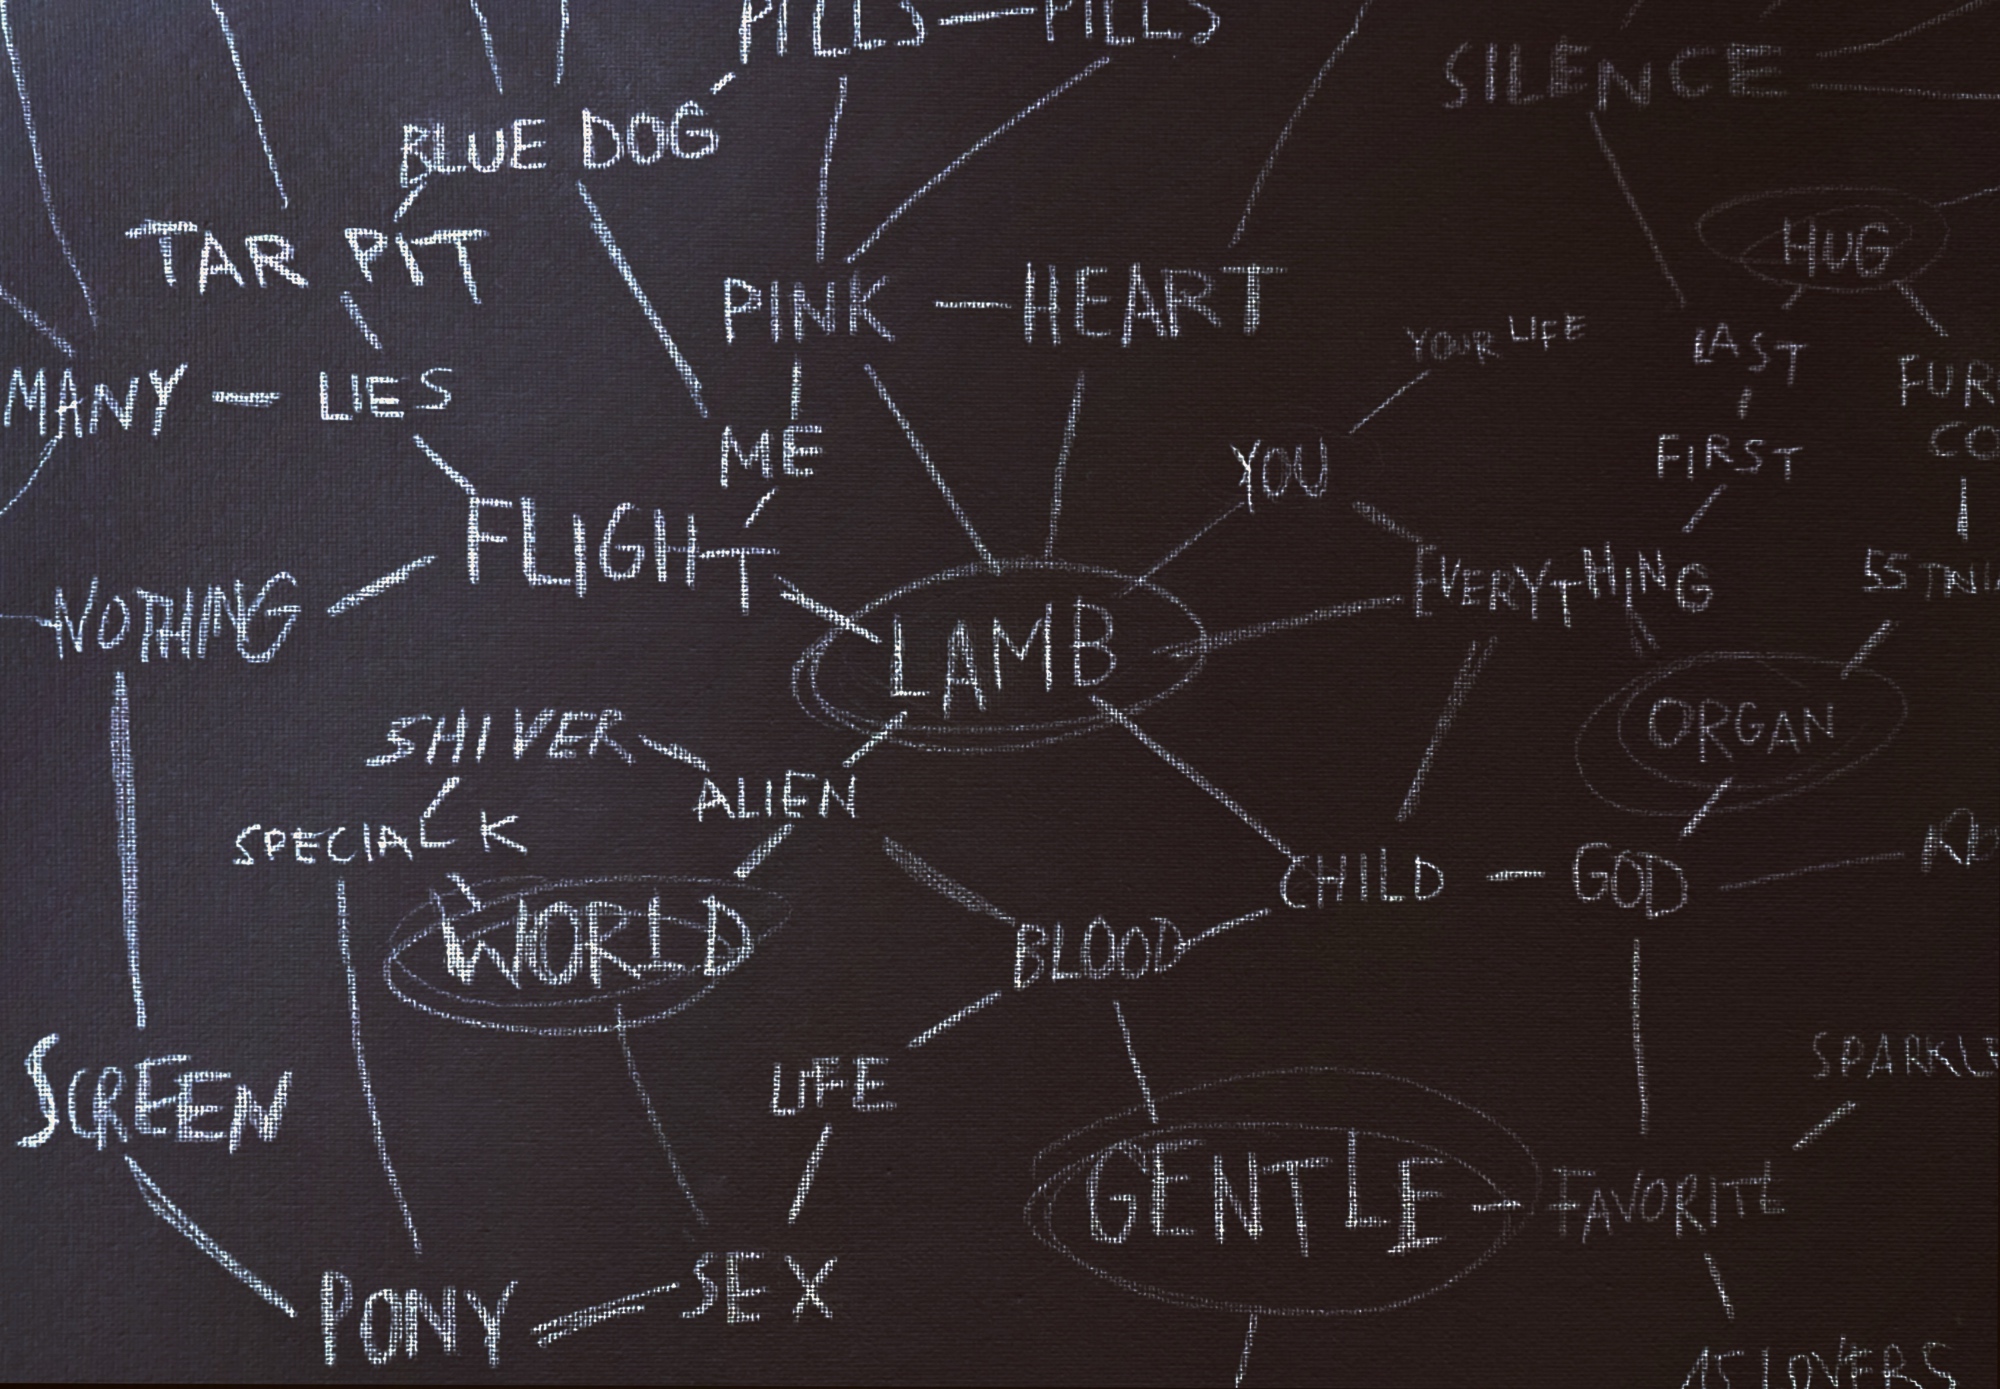 PILLS PILLS
SILENCE
BLUE DOG
TAR PIT
HUG
PINK HEART
YOUR LIFE
LAST
MANY LIES
ME
YOU
FIRST
FLIGHT
EVERYTHING
NOTHING
LAMB
SHIVER
ORGAN
ALIEN
SPECIAL K
CHILD GOD
WORLD
BLOOD
SCREEN
LIFE
SPARKLE
GENTLE FAVORITE
PONY SEX
15 LOVERS